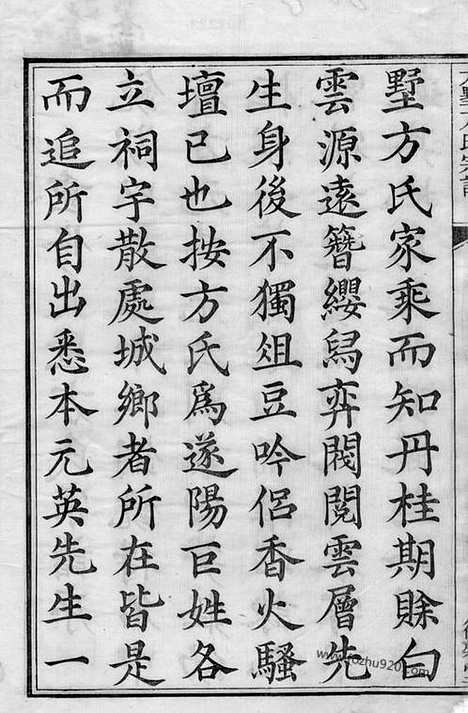 墅方氏家乘而知丹桂期賒白
雲源遠簪纓舄弈閥閱雲層先
生身後不獨俎豆吟侶香火騷
壇已也按方氏爲遂陽巨姓各
立祠宇散處城鄉者所在皆是
而追所自出悉本元英先生一
www.fozhu920.com